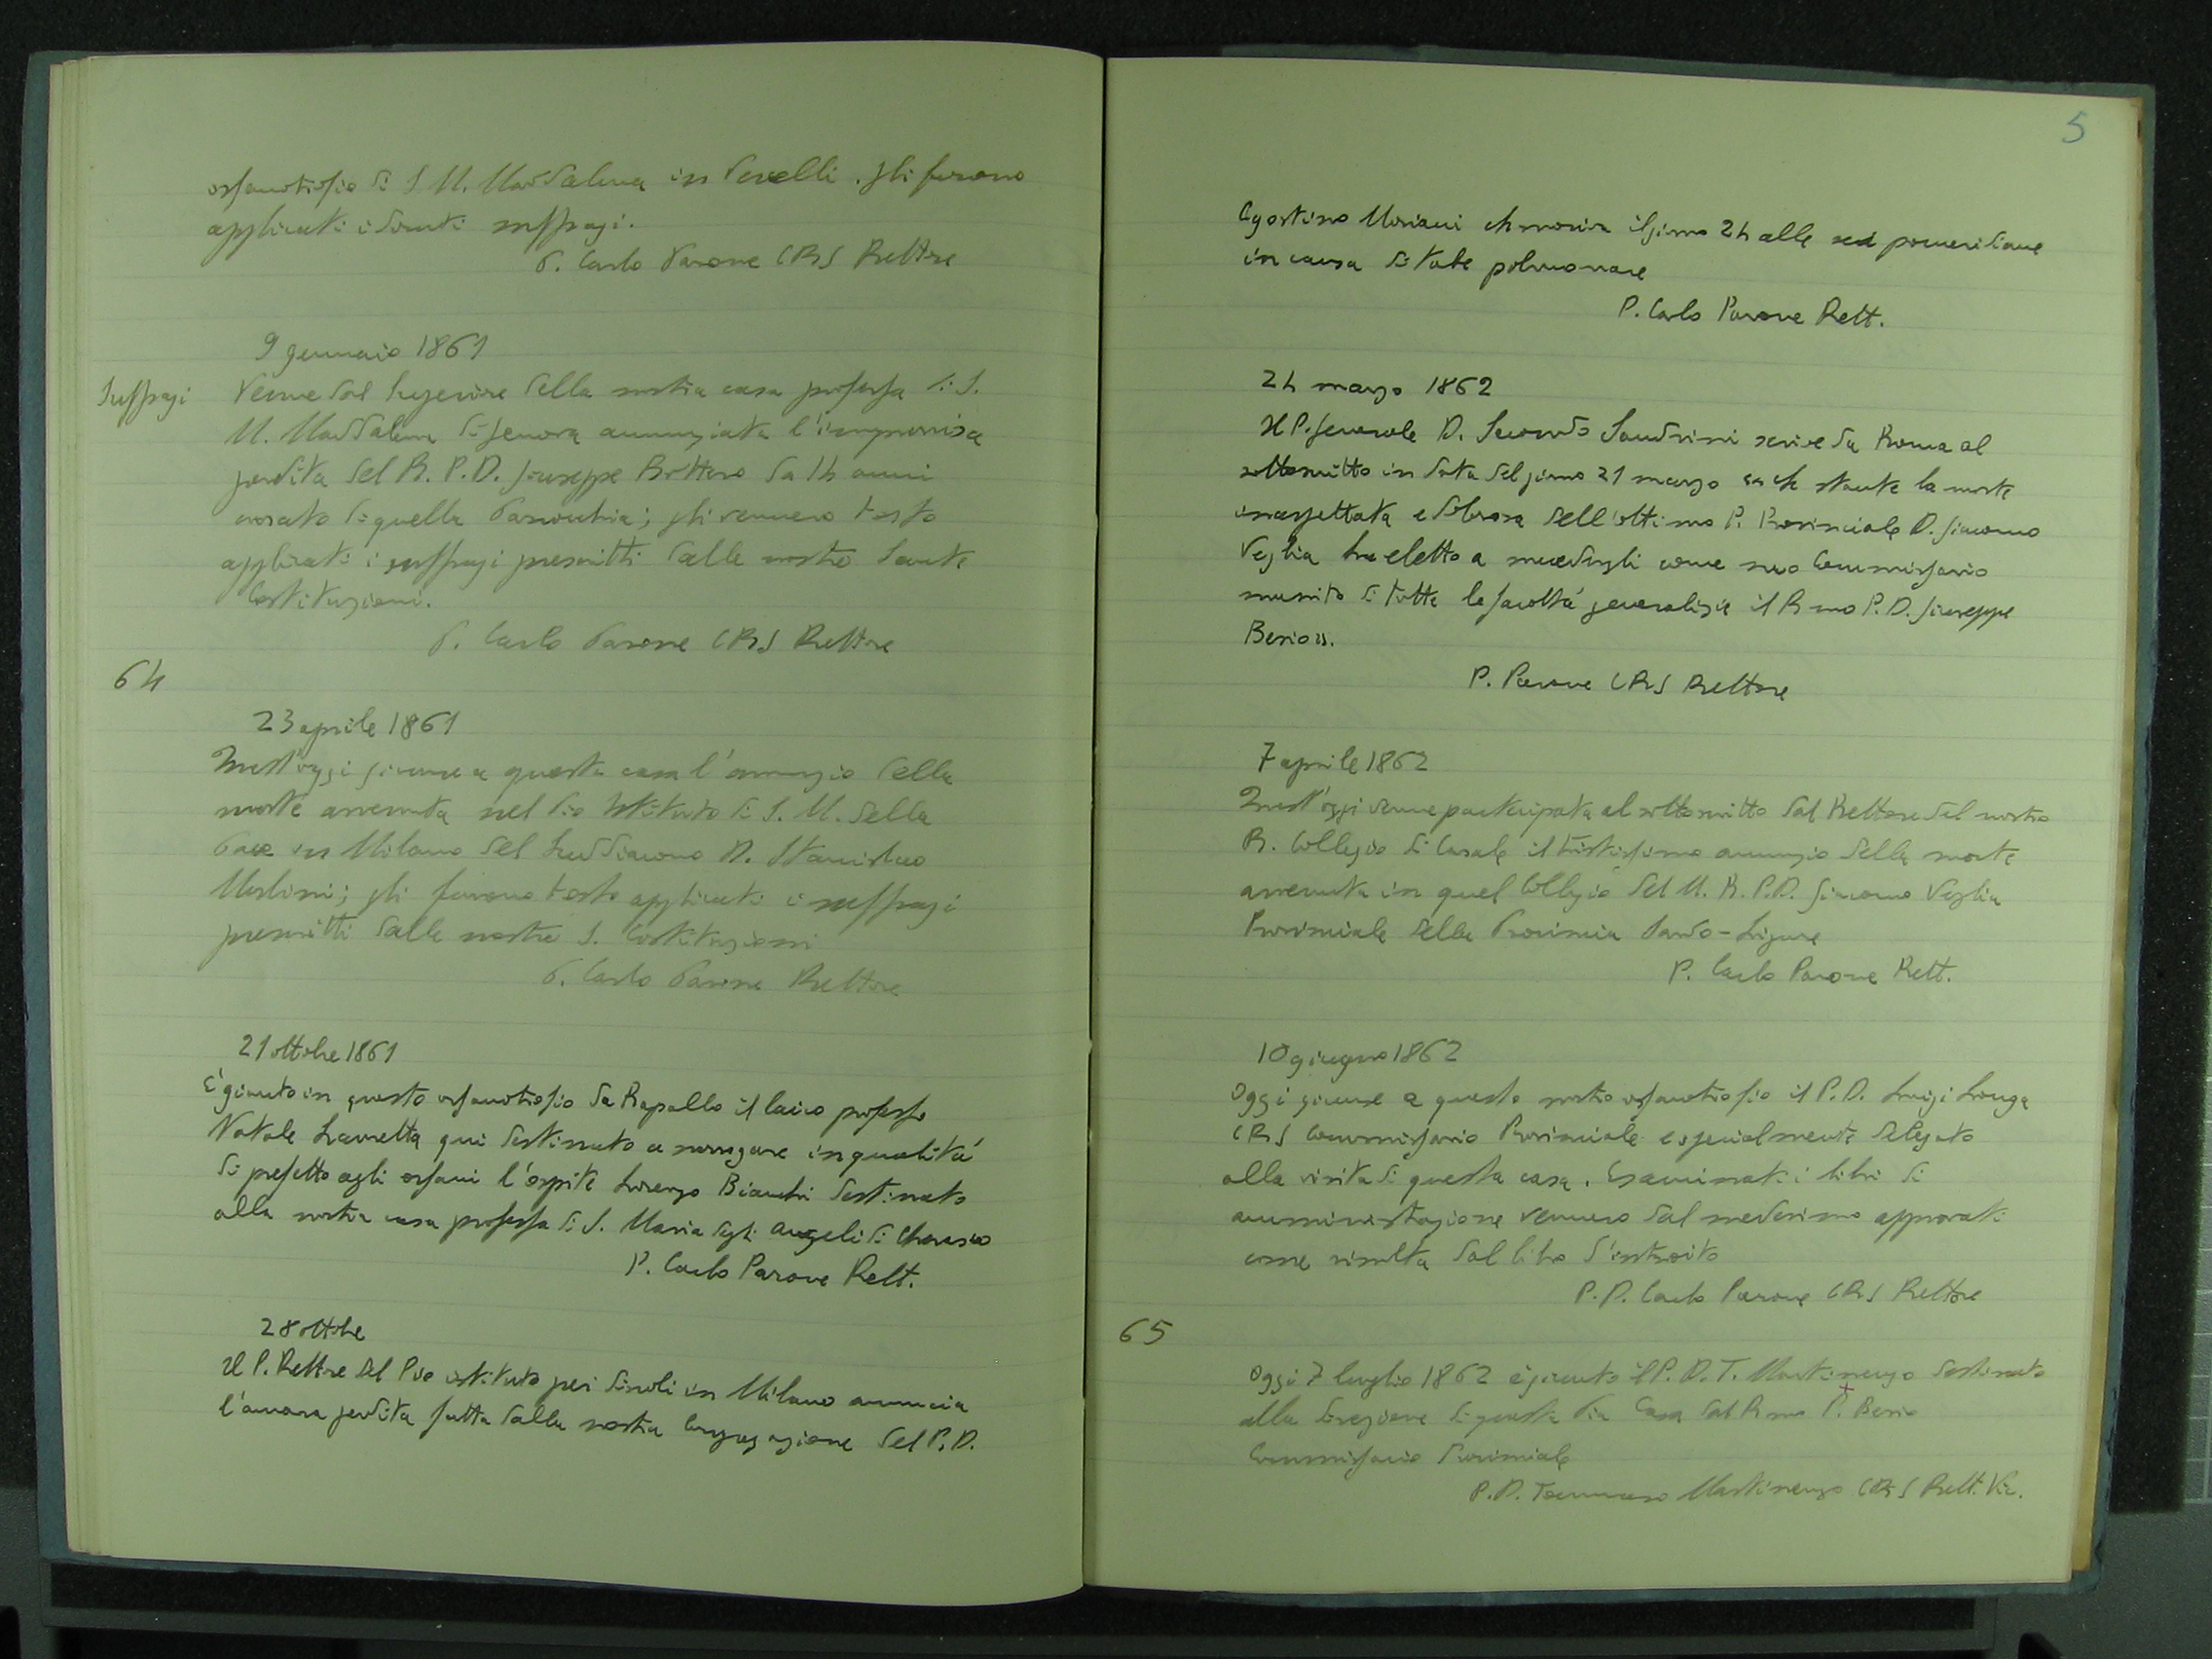 orfanotrofio di S. M. Maddalena in Vercelli. Gli furono
applicati i dovuti suffragi.
P. Carlo Parone CRS Rettore
9 gennaio 1861
Suffragi
Venne dal Superiore della nostra casa professa di S.
M. Maddalena di Genova annunziata l'improvvisa
perdita del R. P. D. Giuseppe Bottero da 14 anni
curato di quella Parrocchia; gli vennero tosto
applicati i suffragi prescritti dalle nostre Sante
Costituzioni.
P. Carlo Parone CRS Rettore
64
23 aprile 1861
Quest'oggi giunse a questa casa l'annunzio della
morte avvenuta nel Pio Istituto di S. M. della
Pace in Milano del Suddiacono D. Stanislao
Merlini; gli furono tosto applicati i suffragi
prescritti dalle nostre S. Costituzioni
P. Carlo Parone Rettore
21 ottobre 1861
È giunto in questo orfanotrofio da Rapallo il laico professo
Natale Lauretta qui destinato a surrogare in qualità
di prefetto agli orfani l'ospite Lorenzo Bianchi destinato
alla nostra casa professa di S. Maria degli Angeli di Cherasco
P. Carlo Parone Rett.
28 ottobre
Il P. Rettore del Pio istituto pei discoli in Milano annuncia
l'amara perdita fatta dalla nostra Congregazione del P. D.
5
Agostino Moriani che moriva il giorno 24 alle sed pomeridiane
in causa di tabe polmonare
P. Carlo Parone Rett.
24 marzo 1862
Il P. Generale D. Secondo Sandrini scrive da Roma al
sottoscritto in data del giorno 21 marzo che stante la morte
inaspettata e dolorosa dell'ottimo P. Provinciale D. Giacomo
Veglia ha eletto a succedergli come suo Commissario
munito di tutte le facoltà generalizie il R.mo P. D. Giuseppe
Berio
P. Parone CRS Rettore
7 aprile 1862
Quest'oggi venne partecipata al sottoscritto dal Rettore del nostro
R. Collegio di Casale il tristissimo annunzio della morte
avvenuta in quel Collegio del M. R. P. D. Giacomo Veglia
Provinciale della Provincia Sardo-Ligure
P. Carlo Parone Rett.
10 giugno 1862
Oggi giunse a questo nostro orfanotrofio il P. D. Luigi Longa
CRS Commissario Provinciale especialmente delegato
alla visita di questa casa. Esaminati i libri di
amministrazione vennero dal medesimo approvati
come risulta dal libro d'introito
P. D. Carlo Parone CRS Rettore
65
Oggi 7 luglio 1862 è giunto il P. D. T. Martinengo destinato
alla direzione di questa Pia Casa dal R.mo P. Berio
Commissario Provinciale
P. D. Tommaso Martinengo CRS Rett. Vic.